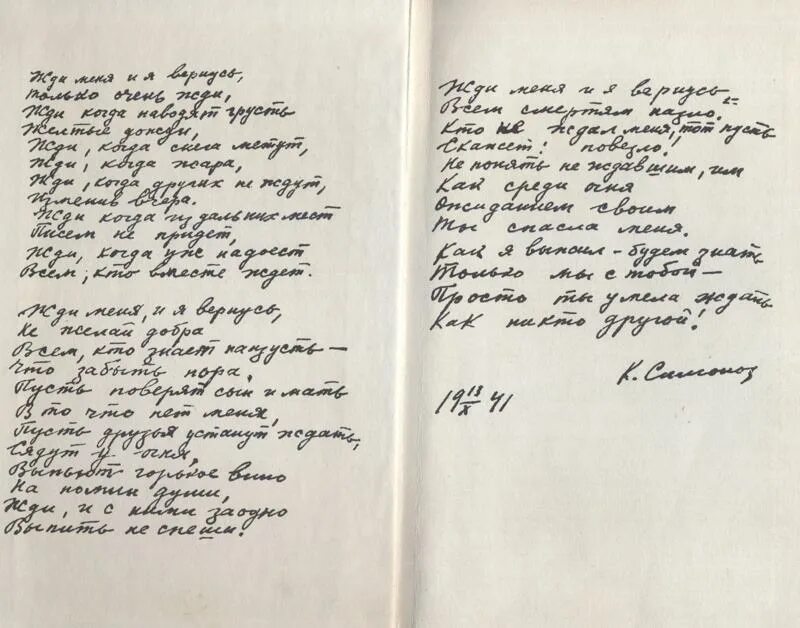 Жди меня и я вернусь,
только очень жди,
Жди когда наводят грусть
Желтые дожди,
Жди, когда снега метут,
Жди, когда жара,
Жди, когда других не ждут,
Изменив вчера.
Жди когда из дальних мест
Писем не придет,
Жди, когда уж надоест
Всем, кто вместе ждет.
Жди меня, и я вернусь,
Не желай добра
Всем, кто знает наизусть —
Что забыть пора,
Пусть поверят сын и мать
В то что нет меня,
Пусть друзья устанут ждать,
Сядут у огня,
Выпьют горькое вино
На помин души,
Жди, и с ними заодно
Выпить не спеши.
Жди меня и я вернусь
Всем смертям назло.
Кто не ждал меня, тот пусть
Скажет: повезло!
Не понять не ждавшим, им
Как среди огня
Ожиданием своим
Ты спасла меня.
Как я выжил – будем знать
Только мы с тобой —
Просто ты умела ждать
Как никто другой!
К. Симонов
19 13/X 41